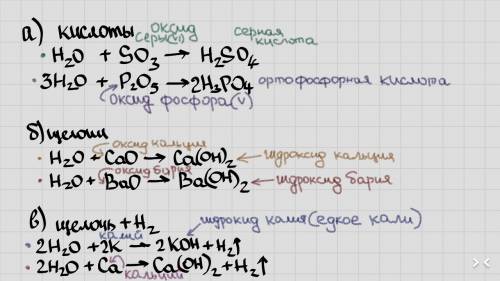 а) кислоты оксид серы(VI) серная кислота
• H₂O + SO₃ → H₂SO₄
• 3H₂O + P₂O₅ → 2H₃PO₄ ортофосфорная кислота
оксид фосфора(V)
б) щелочи оксид кальция
• H₂O + CaO → Ca(OH)₂ гидроксид кальция
оксид бария
• H₂O + BaO → Ba(OH)₂ гидроксид бария
в) щелочь + H₂ гидрокид калия (едкое кали)
калий
• 2H₂O + 2K → 2KOH + H₂↑
• 2H₂O + Ca → Ca(OH)₂ + H₂↑
кальций